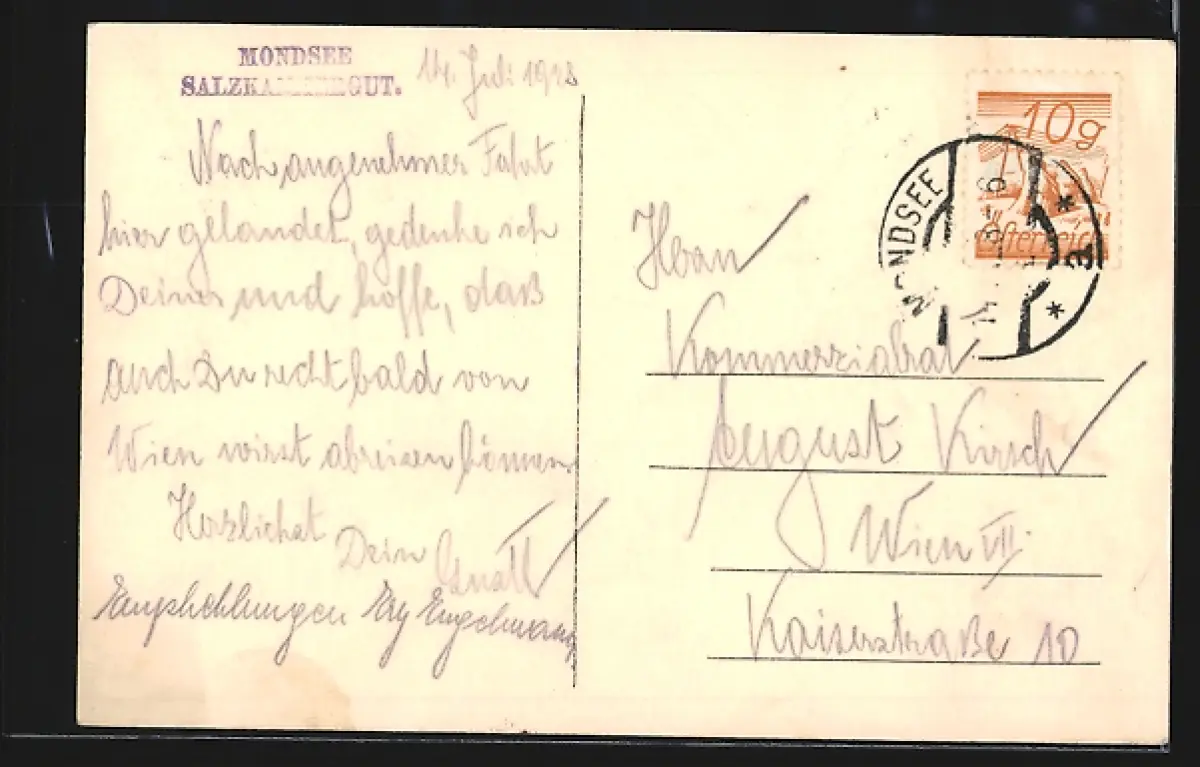 MONDSEE
SALZKAMMERGUT. 14. Juli 1928
Nach angenehmer Fahrt
hier gelandet, gedenke ich
Deiner und hoffe, daß
auch Du recht bald von
Wien wirst abreisen können.
Herzlichst Dein
Empfehlungen
10g
Österreich
MONDSEE
Herrn
Kommerzialrat
August Kirsch
Wien VII.
Kaiserstraße 10